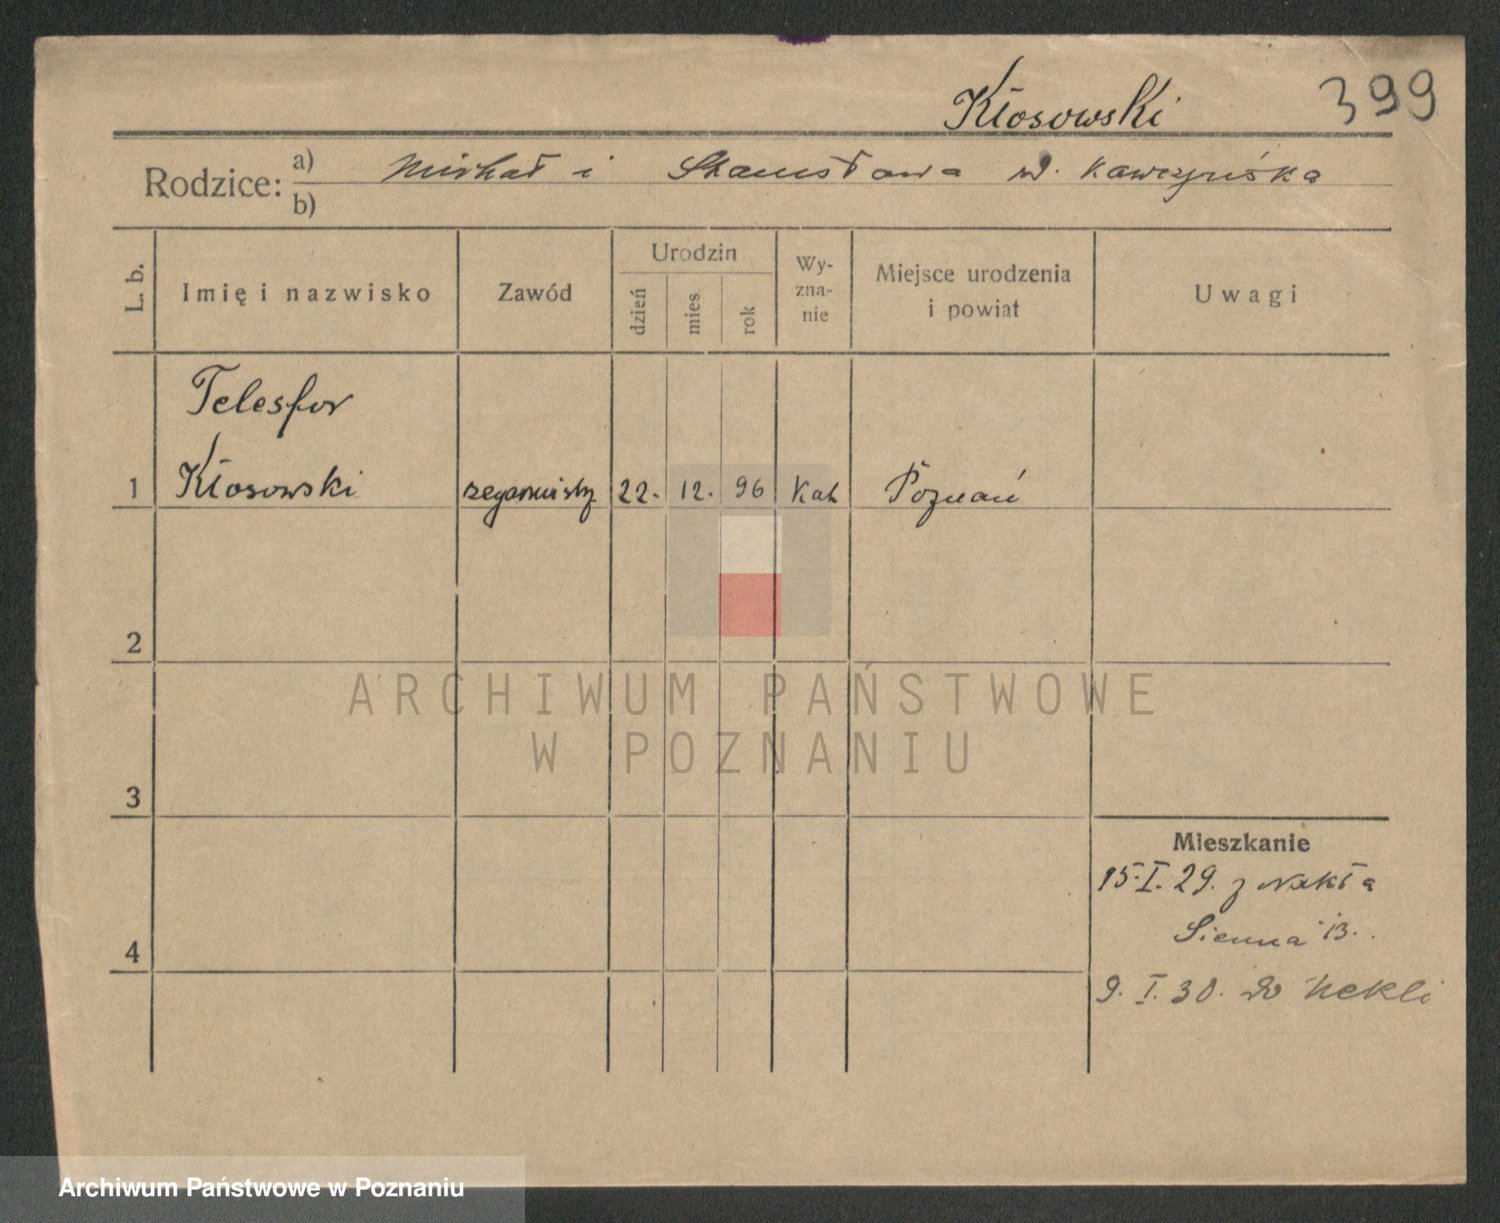 Kłosowski 399
Rodzice: a) Michał i Stanisława
b)
L. b. Imię i nazwisko Zawód Urodzin dzień mies. rok Wy-zna-nie Miejsce urodzenia i powiat Uwagi
Telesfor
1 Kłosowski 22. 12. 96 Kat Poznań
2
ARCHIWUM PAŃSTWOWE
W POZNANIU
3
Mieszkanie
15.I.29. z Nakła
4 Sienna 13.
9. I. 30. do Nekli
Archiwum Państwowe w Poznaniu